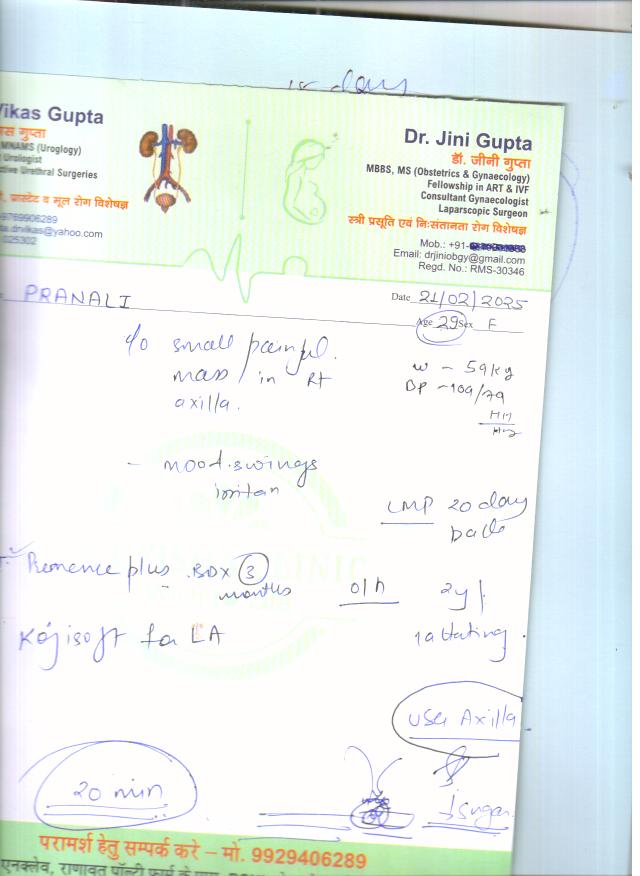 15 days
Vikas Gupta
ास गुप्ता
MNAMS (Uroglogy)
Urologist
ctive Urethral Surgeries
, प्रास्टेट व मूत्र रोग विशेषज्ञ
9769906289
ta.drvikas@yahoo.com
025302
Dr. Jini Gupta
डॉ. जीनी गुप्ता
MBBS, MS (Obstetrics & Gynaecology)
Fellowship in ART & IVF
Consultant Gynaecologist
Laparoscopic Surgeon
स्त्री प्रसूति एवं निःसंतानता रोग विशेषज्ञ
Mob.: +91-
Email: drjiniobgy@gmail.com
Regd. No.: RMS-30346
PRANALI
Date 21/02/2025
Age 29 Sex F
c/o small painful
mass in Rt
axilla.
w - 59kg
BP - 109/79
mm
Hg
- mood swings
LMP 20 day
back
Remence plus BDX 3
months
O/H 2y
lactating.
Kojisoft for LA
USG Axilla
20 min
sugar.
परामर्श हेतु सम्पर्क करे – मो. 9929406289
एनक्लेव, राणावत पॉल्ट्री फार्म के पास,